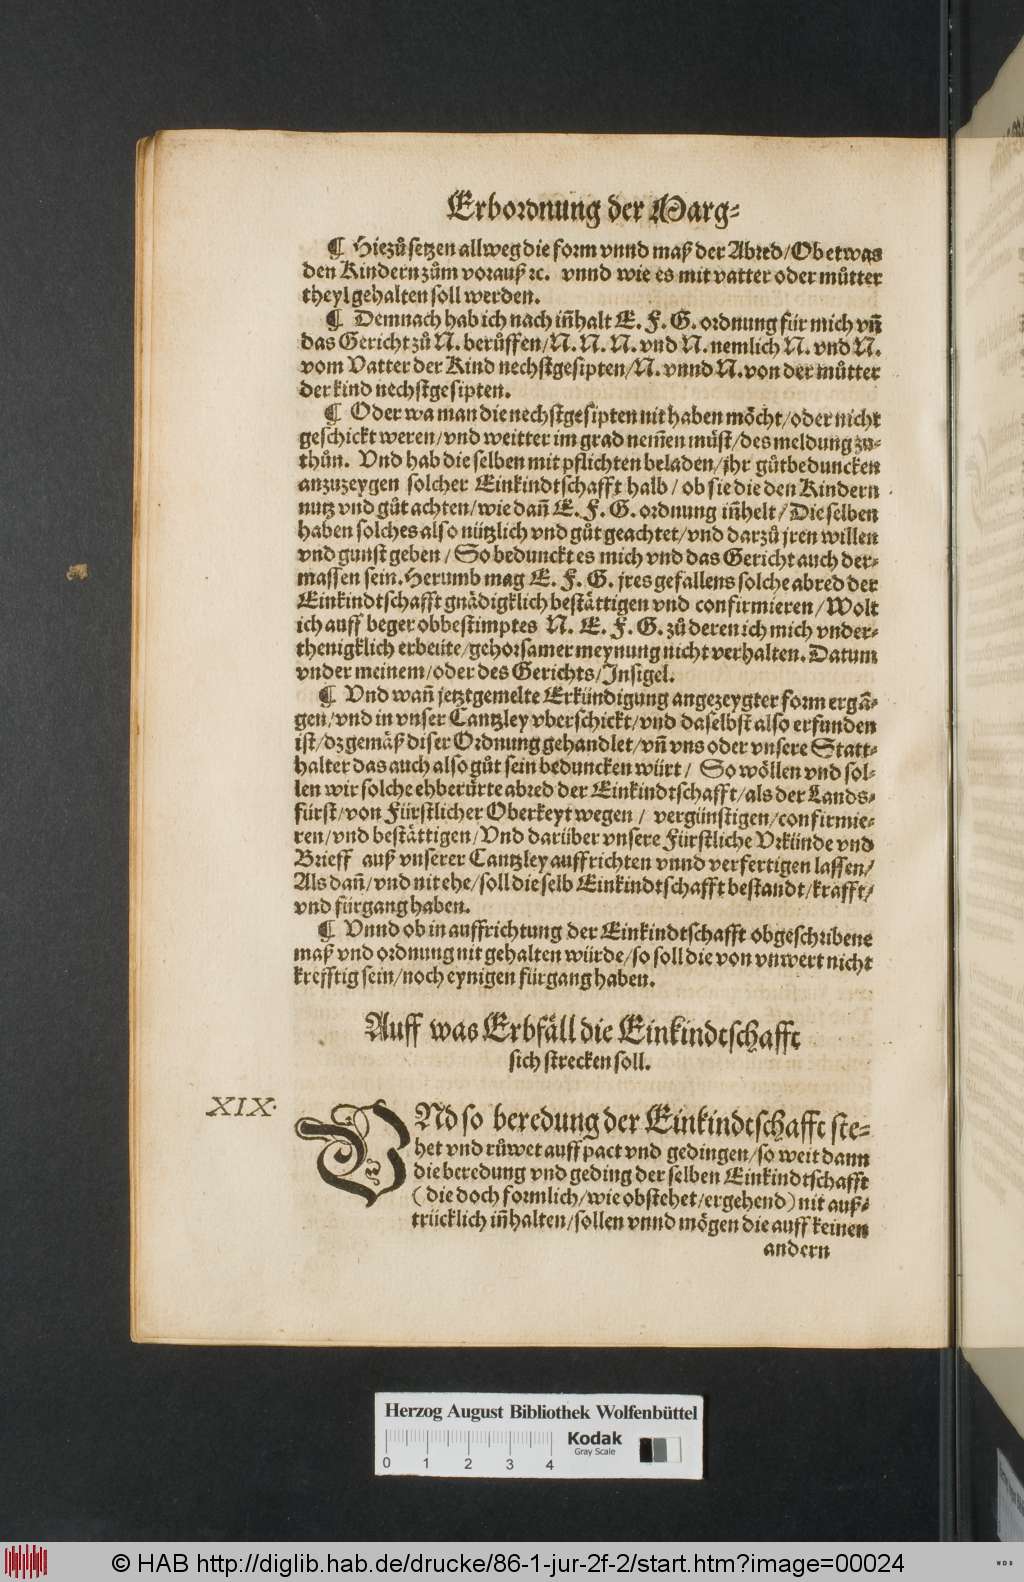 Erbordnung der Marg-
¶ Hiezů setzen allweg die form vnnd maß der Abred/Ob etwas
den Kindern zům vorauß ꝛc. vnnd wie es mit vatter oder můtter
theyl gehalten soll werden.
¶ Demnach hab ich nach iñhalt E. F. G. ordnung für mich vñ
das Gericht zů N. berůffen/N. N. N. vnd N. nemlich N. vnd N.
vom Vatter der Kind nechstgesipten/N. vnnd N. von der můtter
der kind nechstgesipten.
¶ Oder wa man die nechstgesipten nit haben möcht/oder nicht
geschickt weren/vnd weitter im grad nem̃en müst/des meldung zu-
thůn. Vnd hab die selben mit pflichten beladen/jhr gůtbeduncken
anzuzeygen solcher Einkindtschafft halb/ob sie die den Kindern
nutz vnd gůt achten/wie dañ E. F. G. ordnung iñhelt/Die selben
haben solches also nützlich vnd gůt geachtet/vnd darzů jren willen
vnd gunst geben/So bedunckt es mich vnd das Gericht auch der-
massen sein. Herumb mag E. F. G. jres gefallens solche abred der
Einkindtschafft gnädigklich bestättigen vnd confirmieren/Wolt
ich auff beger obbestimptes N. E. F. G. zů deren ich mich vnder-
thenigklich erbeüte/gehorsamer meynung nicht verhalten. Datum
vnder meinem/oder des Gerichts/Insigel.
¶ Vnd wañ jetztgemelte Erkündigung angezeygter form ergã-
gen/vnd in vnser Cantzley vberschickt/vnd daselbst also erfunden
ist/dz gemäß diser Ordnung gehandlet/vñ vns oder vnsere Statt-
halter das auch also gůt sein beduncken würt/ So wöllen vnd sol-
len wir solche ehberürte abred der Einkindtschafft/als der Lands-
fürst/von Fürstlicher Oberkeyt wegen/ vergünstigen/confirmie-
ren/vnd bestättigen/Vnd darüber vnsere Fürstliche Vrkünde vnd
Brieff auß vnserer Cantzley auffrichten vnnd verfertigen lassen/
Als dañ/vnd nit ehe/soll die selb Einkindtschafft bestandt/krafft/
vnd fürgang haben.
¶ Vnnd ob in auffrichtung der Einkindtschafft obgeschribene
maß vnd ordnung nit gehalten würde/so soll die von vnwert nicht
krefftig sein/noch eynigen fürgang haben.
Auff was Erbfäll die Einkindtschafft
sich strecken soll.
XIX.
VNd so beredung der Einkindtschafft ste-
het vnd růwet auff pact vnd gedingen/so weit dann
die beredung vnd geding der selben Einkindtschafft
(die doch formlich/wie obstehet/ergehend) nit auß-
trücklich iñhalten/sollen vnnd mögen die auff keinen
andern
Herzog August Bibliothek Wolfenbüttel
Kodak
Gray Scale
0 1 2 3 4
© HAB http://diglib.hab.de/drucke/86-1-jur-2f-2/start.htm?image=00024